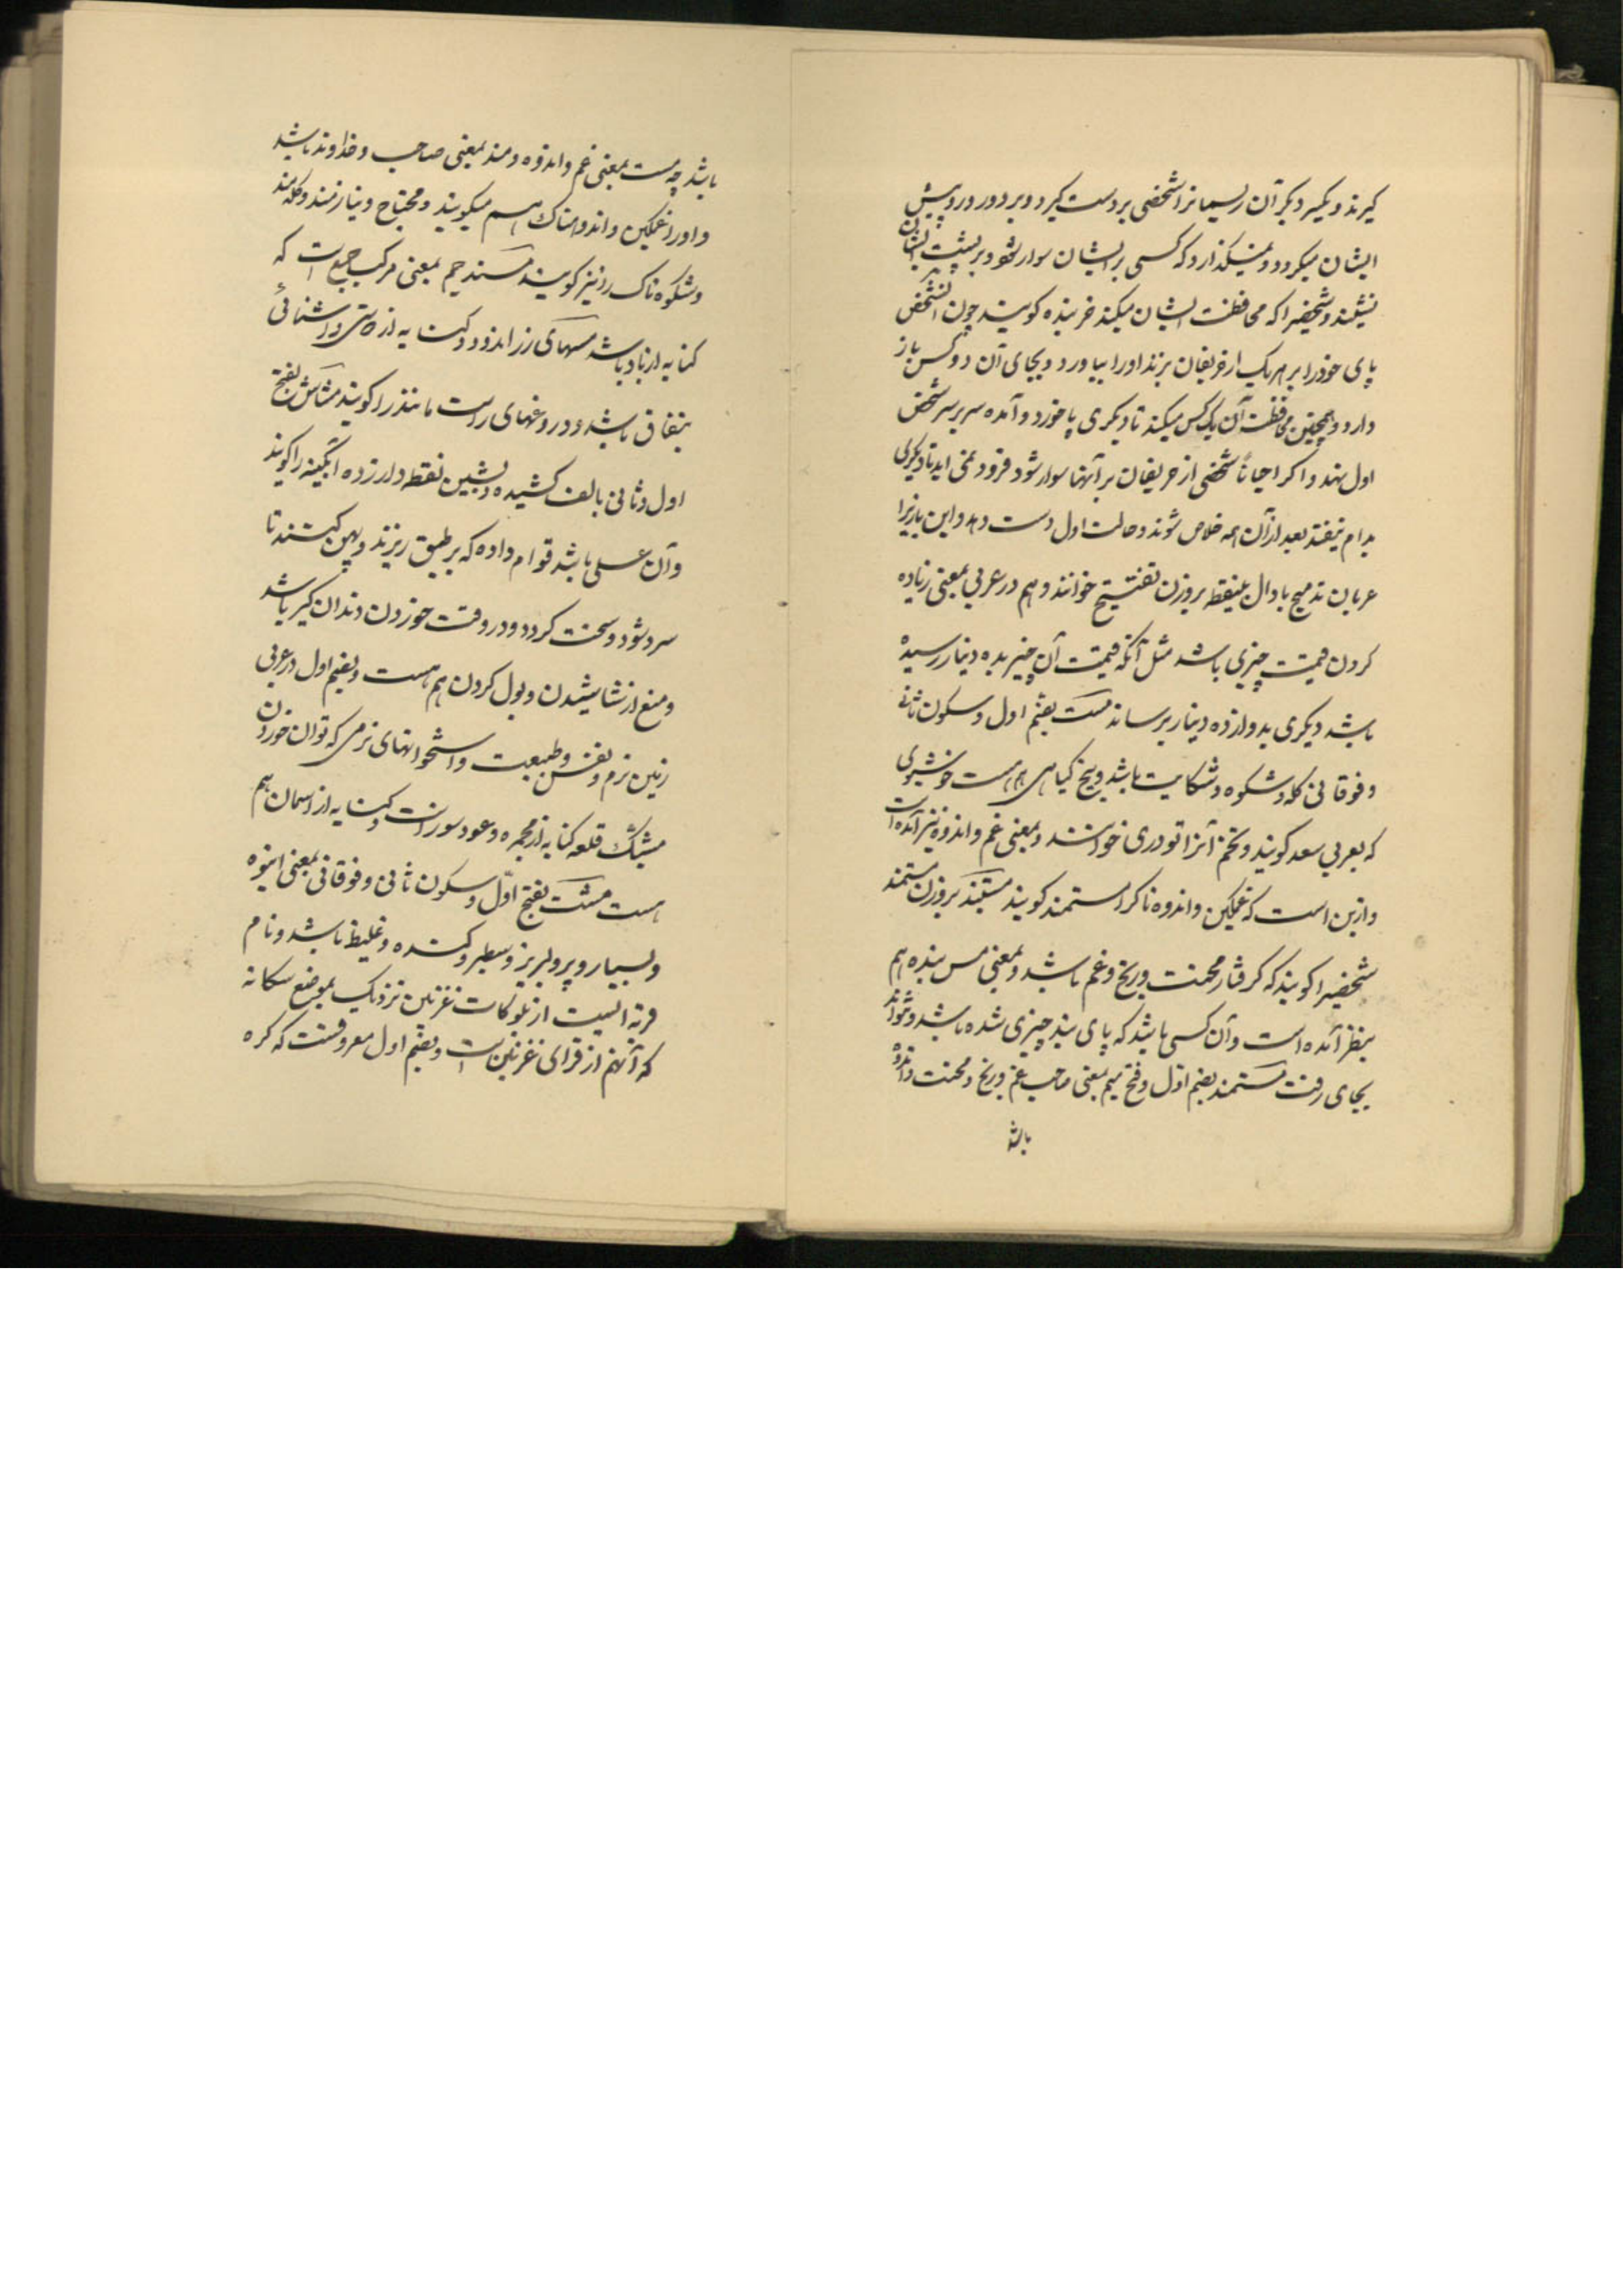 کیرند و یکسر دیکر آن ریسمانرا شخصی بر دست کیرد و بر دور و پیش
ایشان میکردد و نمیکذارد که کسی بر ایشان سوار شود و بر پشت ایشان
نشیند و شخصیرا که محافظت ایشان میکند خربنده کویند چون انشخص
پای خود را بر هر یک از حریفان بزند او را بیاورد و بجای آن دو کس باز
دارد و همچنین محافظت آن یک کس میکند تا دیکری پا خورد و آمده سر بر سر شخص
اول نهد و اکر احیاناً شخصی از حریفان بر آنها سوار شود فرود نمی اید تا دیکری
بدام نیفتد بعد از آن همه خلاص شوند و حالت اول دست دهد و این بازیرا
عربان تدمیح با دال بینقطه بر وزن تفتیح خوانند و هم در عربی بمعنی زیاده
کردن قیمت چیزی باشد مثل آنکه قیمت آن چیز بده دینار رسیده
باشد دیکری بدوازده دینار برساند مست بضم اول و سکون ثانی
و فوقانی کله و شکوه و شکایت باشد و بیخ کیاهی هم هست خوشبوی
که بعربی سعد کویند و تخم آنرا تودری خوانند و بمعنی غم و اندوه نیز آمده است
و ازین است که غمکین و اندوه ناکرا مستمند کویند مستبند بر وزن مستمند
شخصیرا کویند که کرفتار محنت و رنج و غم باشد و بمعنی مس بنده هم
بنظر آمده است و آن کسی باشد که پای بند چیزی شده باشد و نتواند
بجای رفت مستمند بضم اول و فتح میم بمعنی صاحب غم و رنج و محنت و اندوه
باشد
باشد چه مست بمعنی غم و اندوه و مند بمعنی صاحب و خداوند باشد
و او را غمکین و اندوهناک هم میکویند و محتاج و نیازمند و کله مند
و شکوه ناک را نیز کویند مسند جم بمعنی مرکب جمع است که
کنایه از باد باشد مسهای زر اندود کنایه از دوستی و اشنائی
بنفاق باشد و دروغهای راست مانند را کویند مشاش بفتح
اول و ثانی بالف کشیده و بشین نقطه دار زده ابکینه را کویند
و آن عسلی باشد قوام داده که بر طبق ریزند و پهن کنند تا
سرد شود و سخت کردد و در وقت خوردن دندان کیر باشد
و منع از نشاشیدن و بول کردن هم هست و بضم اول در عربی
زمین نرم و نفس و طبیعت و استخوانهای نرمی که توان خوردن
مشبک قلعه کنایه از مجمره و عود سوز است و کنایه از اسمان هم
هست مشت بفتح اوّل و سکون ثانی و فوقانی بمعنی انبوه
و بسیار و پر و لبریز و سطبر و کنده و غلیظ باشد و نام
قریه ایست از بلوکات غزنین نزدیک بموضع سکانه
که آنهم از قرای غزنین است و بضم اول معروفست که کره